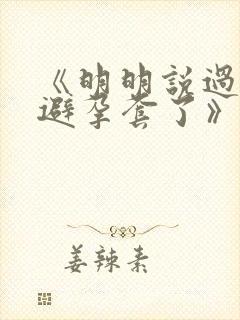 《明明說過
避孕套了》
姜辣素